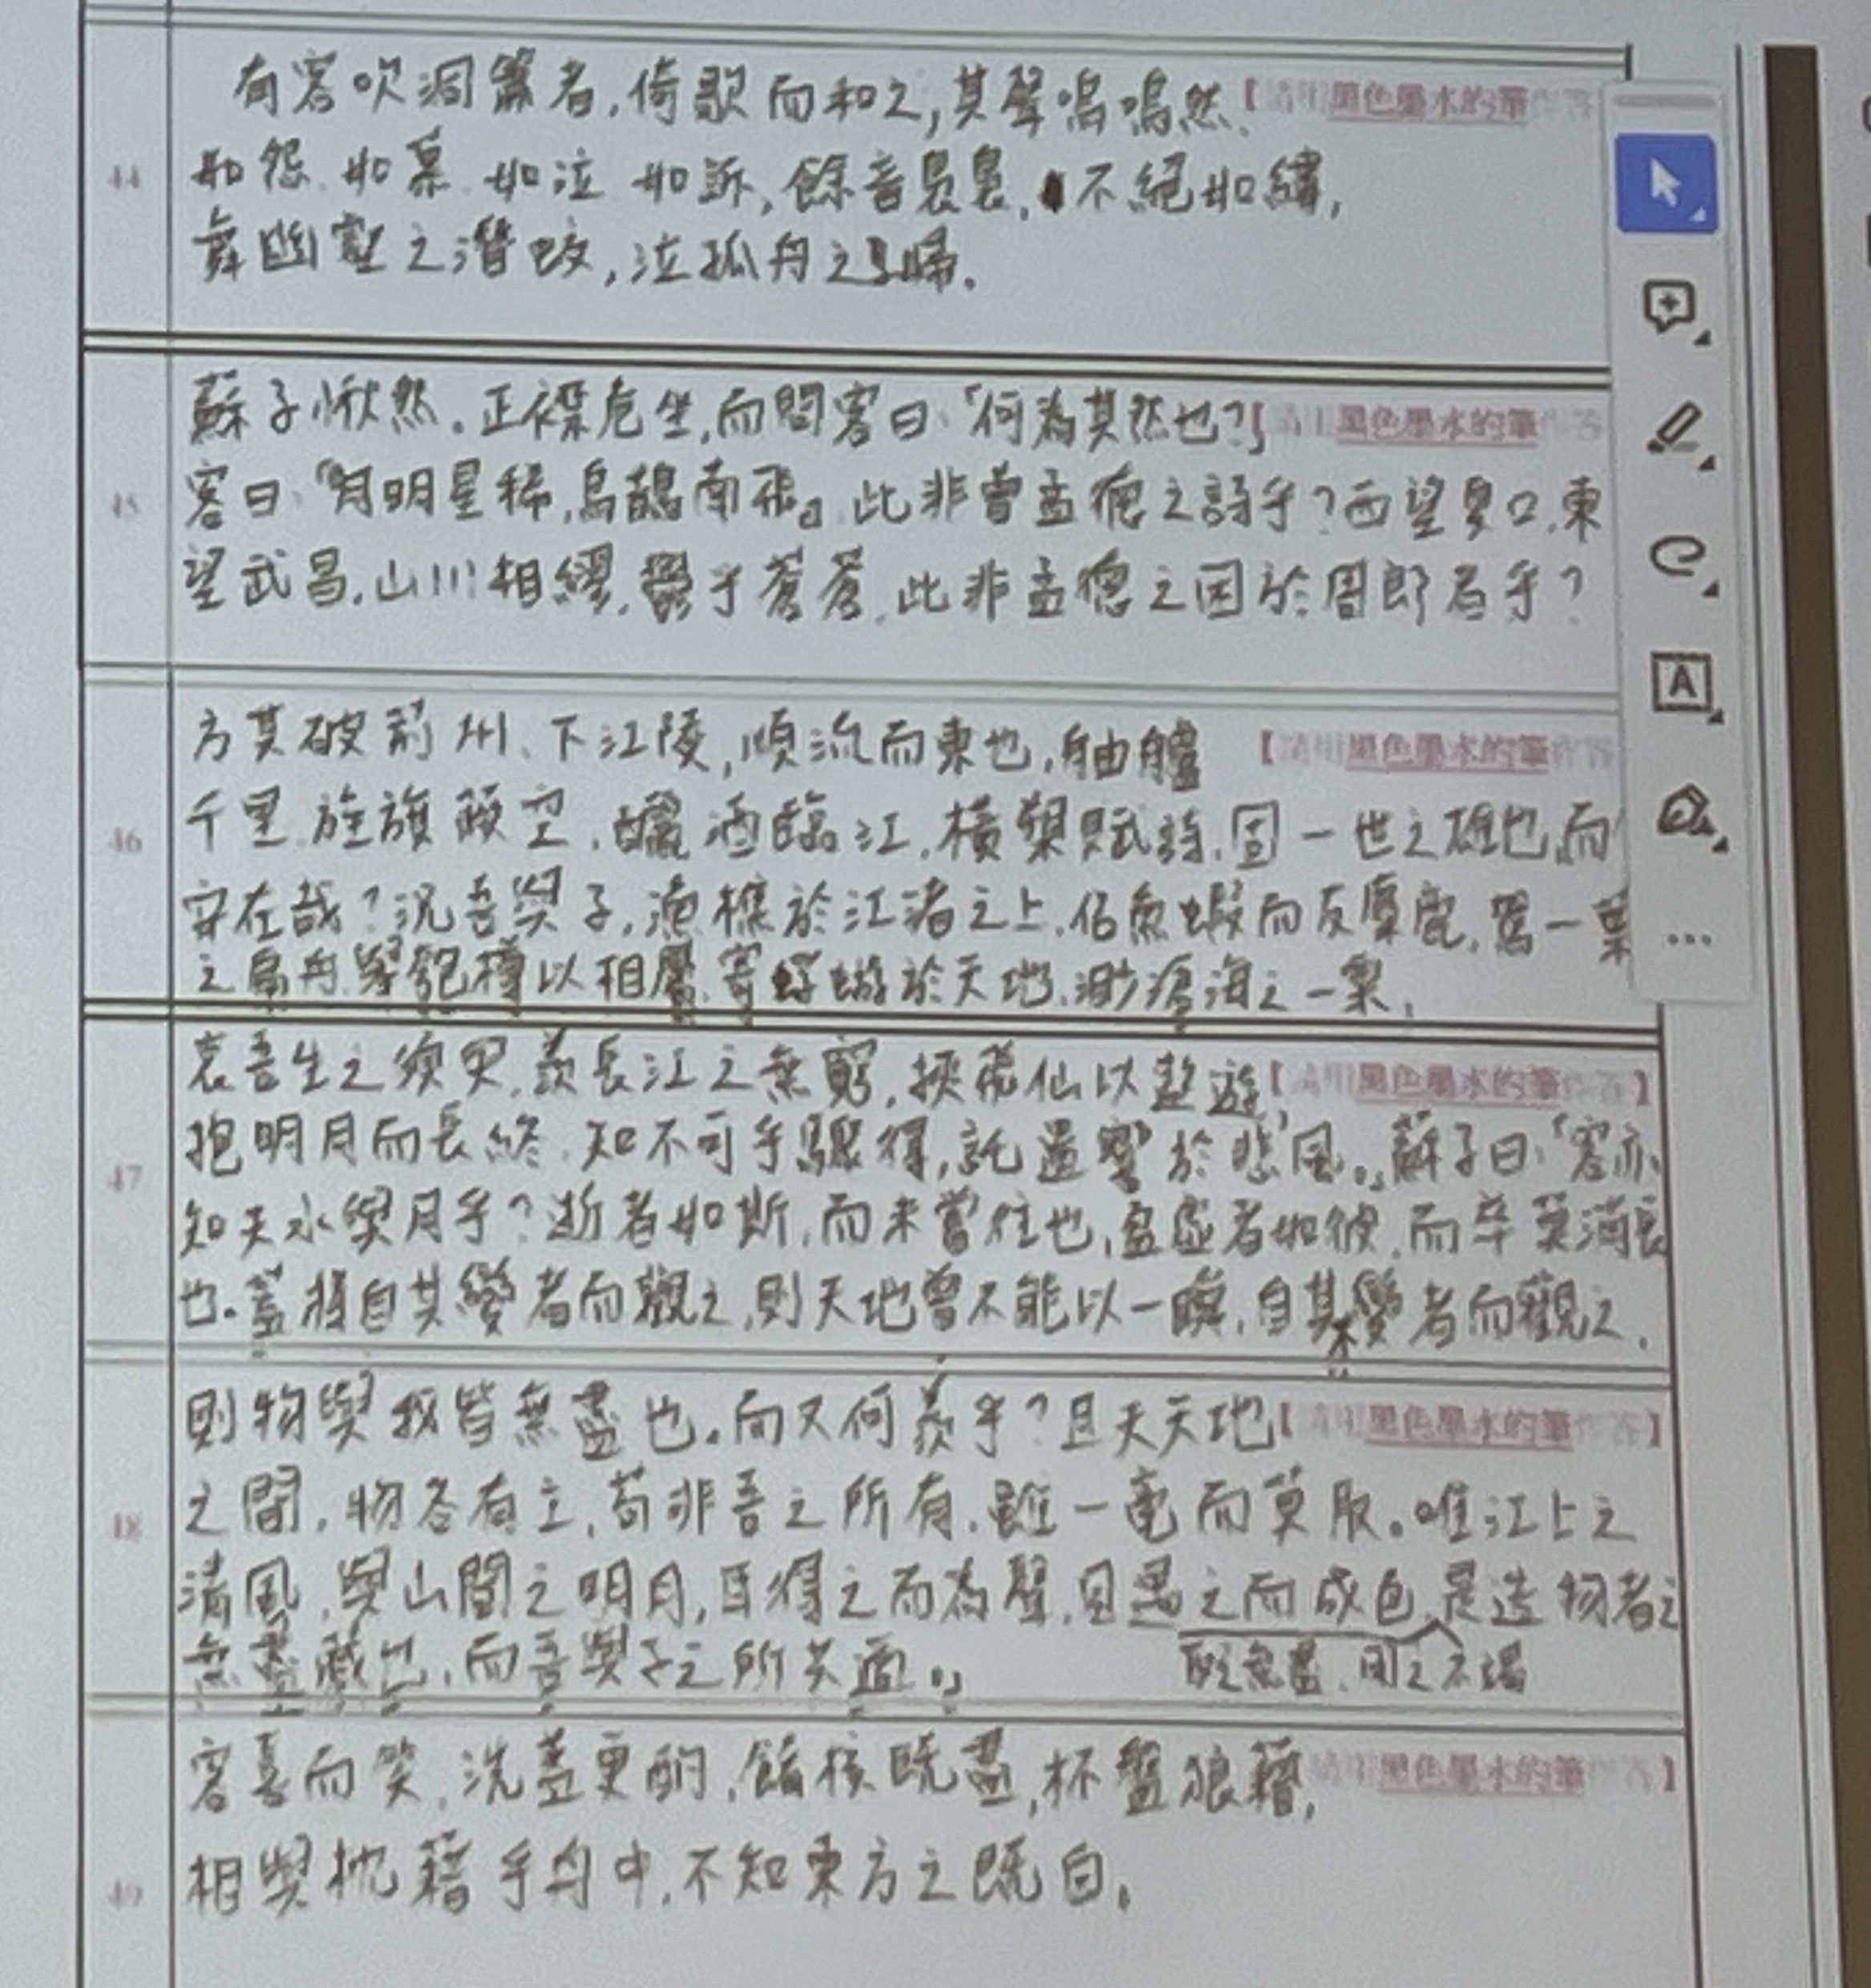 有客吹洞簫者,倚歌而和之,其聲嗚嗚然、【請用黑色墨水的筆作答
44
如怨、如慕、如泣、如訴,餘音裊裊,不絕如縷,
舞幽壑之潛蛟,泣孤舟之嫠婦.
蘇子愀然.正襟危坐,而問客曰:「何為其然也?」請用黑色墨水的筆作答
45
客曰:「『月明星稀,烏鵲南飛』此非曹孟德之詩乎?西望夏口,東
望武昌,山川相繆,鬱乎蒼蒼,此非孟德之困於周郎者乎?
方其破荊州、下江陵,順流而東也,舳艫【請用黑色墨水的筆作答
46
千里,旌旗蔽空,釃酒臨江,橫槊賦詩,固一世之雄也,而
安在哉?況吾與子,漁樵於江渚之上,侶魚蝦而友麋鹿,駕一葉
之扁舟,舉匏樽以相屬,寄蜉蝣於天地,渺滄海之一粟,
哀吾生之須臾,羨長江之無窮,挾飛仙以遨遊,【請用黑色墨水的筆作答】
抱明月而長終,知不可乎驟得,託遺響於悲風。」蘇子曰:「客亦
47
知夫水與月乎?逝者如斯,而未嘗往也,盈虛者如彼,而卒莫消長
也.蓋將自其變者而觀之,則天地曾不能以一瞬,自其不變者而觀之,
則物與我皆無盡也.而又何羨乎?且夫天地【請用黑色墨水的筆作答】
48
之間,物各有主,苟非吾之所有,雖一毫而莫取。唯江上之
清風,與山間之明月,耳得之而為聲,目遇之而成色,是造物者之
取之無盡,用之不竭
無盡藏也,而吾與子之所共適。」
客喜而笑,洗盞更酌,餚核既盡,杯盤狼藉,請用黑色墨水的筆作答】
49
相與枕藉乎舟中,不知東方之既白。
A